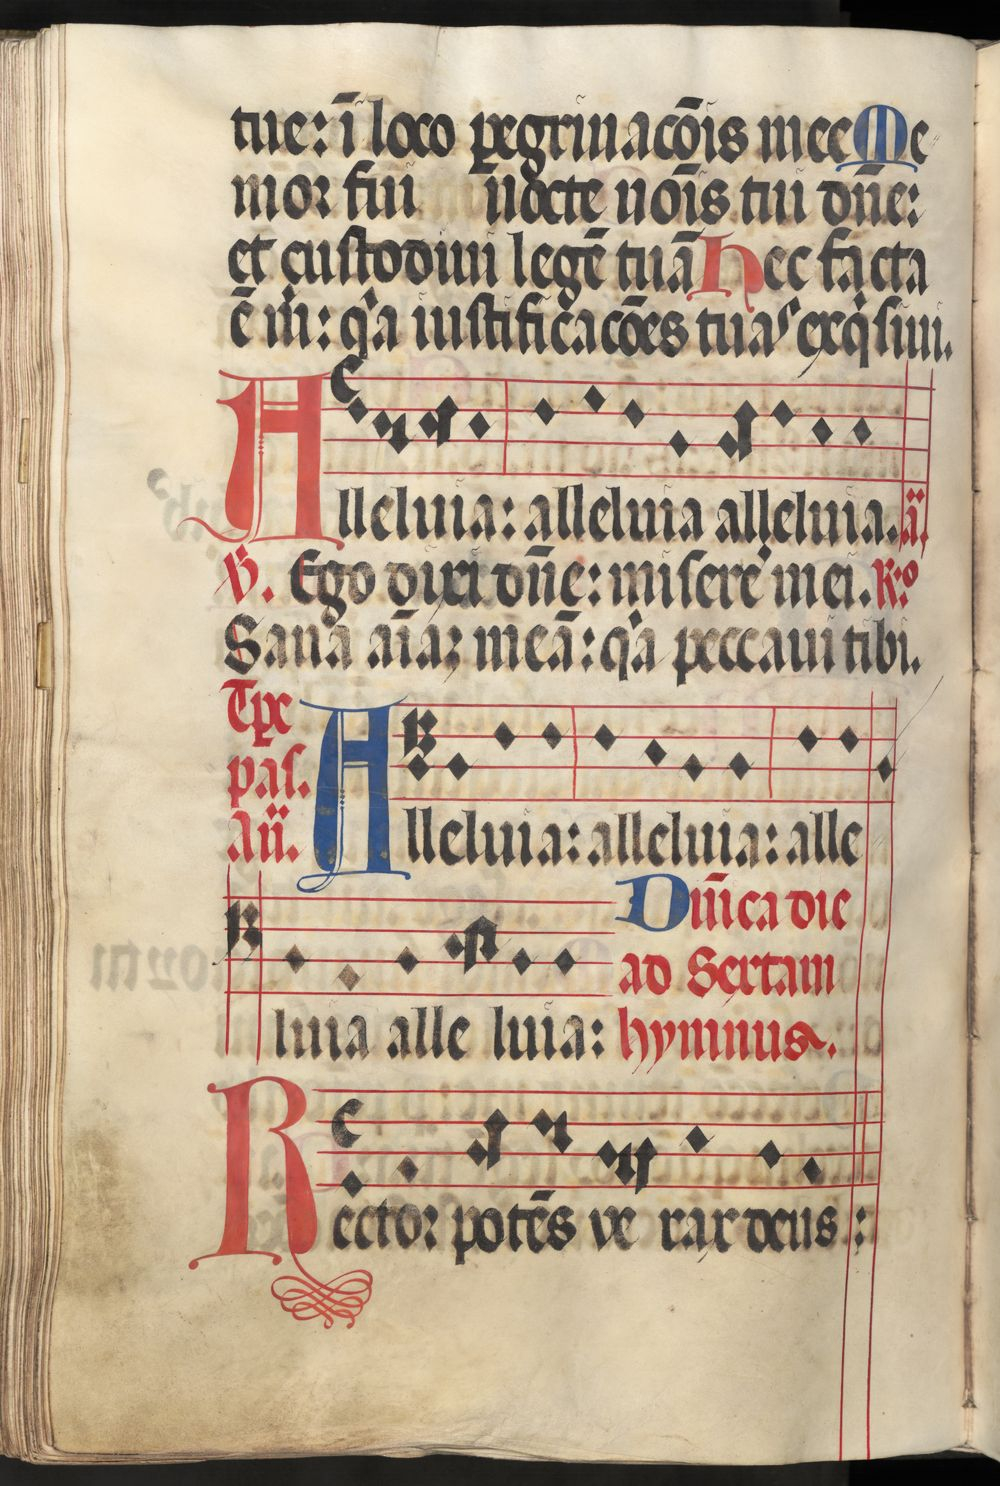 tue: ī loco ꝑegrinacōis mee Me
mor fui nocte nōis tui dn̄e:
et custodiui legē tuā Hec facta
ē m̄: qa iustificacōes tuas exqͥsiui.
Alleluia: alleluia alleluia. ā
V. Ego dixi dn̄e: miserere mei. R:o
Sana aīaꝫ meā: qa peccaui tibi.
Tꝑe
pas.
An̄.
Alleluia: alleluia: alle
luia alle luia:
Dn̄ica die
ad Sextam
hymnus.
Rector potēs ve rax deus: